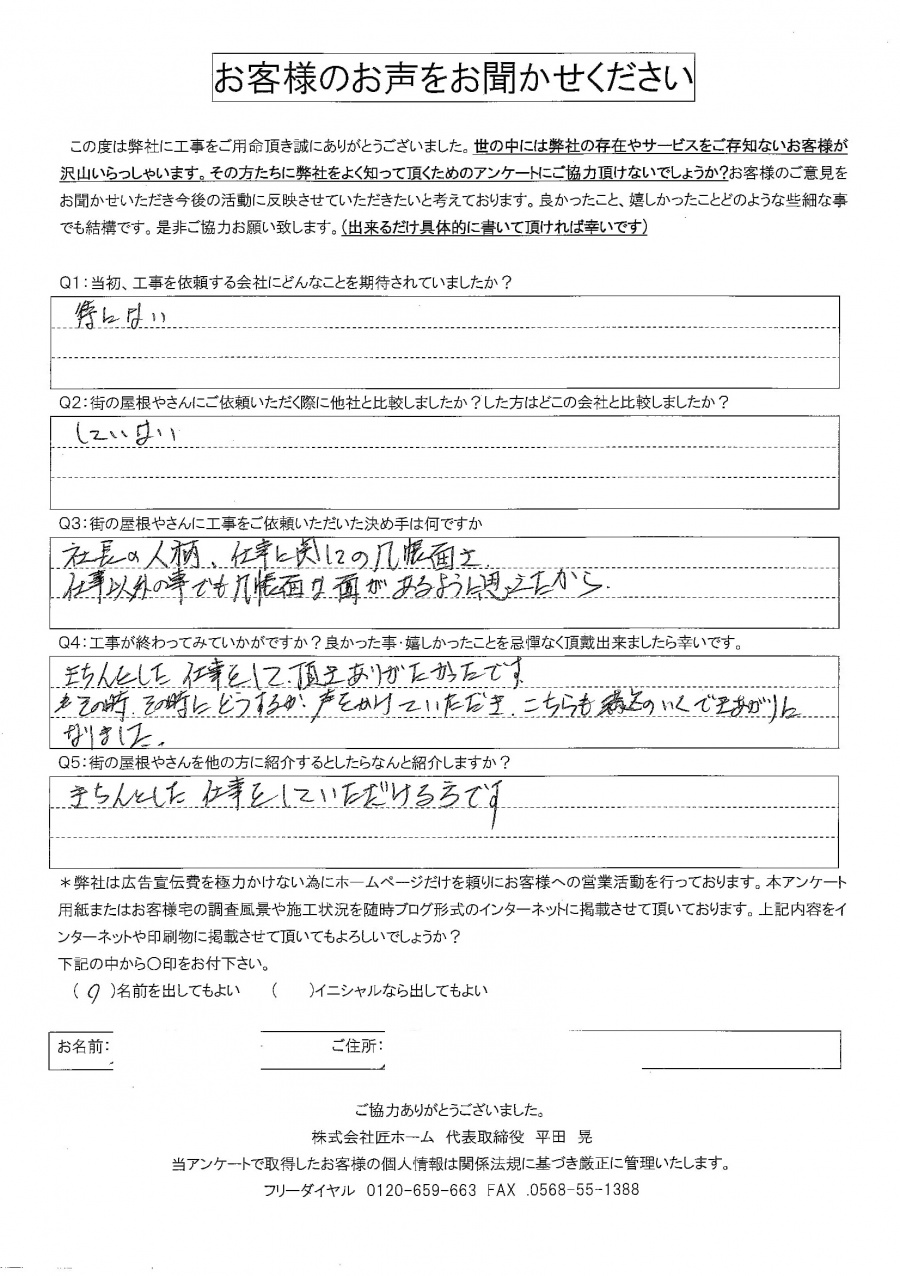 お客様のお声をお聞かせください
この度は弊社に工事をご用命頂き誠にありがとうございました。世の中には弊社の存在やサービスをご存知ないお客様が
沢山いらっしゃいます。その方たちに弊社をよく知って頂くためのアンケートにご協力頂けないでしょうか?お客様のご意見を
お聞かせいただき今後の活動に反映させていただきたいと考えております。良かったこと、嬉しかったことどのような些細な事
でも結構です。是非ご協力お願い致します。(出来るだけ具体的に書いて頂ければ幸いです)
Q1:当初、工事を依頼する会社にどんなことを期待されていましたか?
特にない
Q2:街の屋根やさんにご依頼いただく際に他社と比較しましたか?した方はどこの会社と比較しましたか?
していない
Q3:街の屋根やさんに工事をご依頼いただいた決め手は何ですか
社長の人柄、仕事に関しての几帳面さ
仕事以外の事でも几帳面な面があるように思えたから.
Q4:工事が終わってみていかがですか?良かった事・嬉しかったことを忌憚なく頂戴出来ましたら幸いです。
きちんとした仕事をして頂きありがたかったです
その時、その時にどうするか声をかけていただき、こちらも納得のいくできあがりに
なりました。
Q5:街の屋根やさんを他の方に紹介するとしたらなんと紹介しますか?
きちんとした仕事をしていただける方です
*弊社は広告宣伝費を極力かけない為にホームページだけを頼りにお客様への営業活動を行っております。本アンケート
用紙またはお客様宅の調査風景や施工状況を随時ブログ形式のインターネットに掲載させて頂いております。上記内容をイ
ンターネットや印刷物に掲載させて頂いてもよろしいでしょうか?
下記の中から〇印をお付下さい。
( )名前を出してもよい ( )イニシャルなら出してもよい
お名前: ご住所:
ご協力ありがとうございました。
株式会社匠ホーム 代表取締役 平田 晃
当アンケートで取得したお客様の個人情報は関係法規に基づき厳正に管理いたします。
フリーダイヤル 0120-659-663 FAX .0568-55-1388